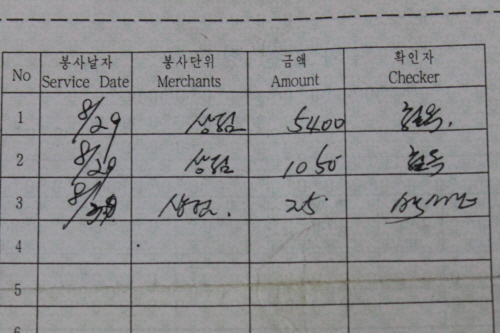 No 봉사날자 봉사단위 금액 확인자
Service Date Merchants Amount Checker
1 8/29 상점 5400
2 8/29 상점 1050
3 8/30 상점. 25
4
5
6